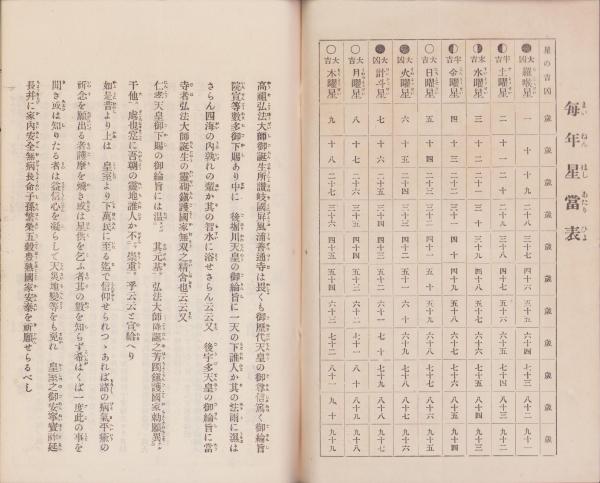 每年星當表
まいねんほしあたりひよ
星の吉凶 歲 歲 歲 歲 歲 歲 歲 歲 歲 歲 歲
大凶 羅喉星 一 十 十九 二十八 三十七 四十六 五十五 六十四 七十三 八十二 九十一
半吉 土曜星 二 十一 二十 二十九 三十八 四十七 五十六 六十五 七十四 八十三 九十二
末吉 水曜星 三 十二 二十一 三十 三十九 四十八 五十七 六十六 七十五 八十四 九十三
半吉 金曜星 四 十三 二十二 三十一 四十 四十九 五十八 六十七 七十六 八十五 九十四
大吉 日曜星 五 十四 二十三 三十二 四十一 五十 五十九 六十八 七十七 八十六 九十五
大凶 火曜星 六 十五 二十四 三十三 四十二 五十一 六十 六十九 七十八 八十七 九十六
大凶 計斗星 七 十六 二十五 三十四 四十三 五十二 六十一 七十 七十九 八十八 九十七
大吉 月曜星 八 十七 二十六 三十五 四十四 五十三 六十二 七十一 八十 八十九 九十八
大吉 木曜星 九 十八 二十七 三十六 四十五 五十四 六十三 七十二 八十一 九十 九十九
高祖弘法大師御誕生所讃岐國屏風浦善通寺は畏くも御歷代天皇の御尊信篤く御綸旨
院宣等數多御下賜あり中に 後堀川天皇の御綸旨に一天の下誰人か其の法雨に濕は
さらん四海の內孰れの輩か其の智水に浴せさらん云云又 後宇多天皇の御綸旨に當
寺者弘法大師誕生の靈砌鎮護國家無双之精舍也云云又
仁孝天皇御下賜の御綸旨には溫 其元基 弘法大師降誕之芳躅鎮護國家勅願異
于他 處也寔に吾朝の靈地誰人か不 崇重 乎云云と宣給へり
如是昔より上は 皇室より下萬民に至る迄て信仰せられつゝあれば諸の病氣平癒の
祈念を願出る者護摩を燒き或は星供を乞ふ者其の數を知らず希はくば一度此の事を
聞き或は知りたる者は益信心を凝らして天災地變等をも免れ 皇室之御安寧寶祚延
長幷に家內安全無病長命子孫繁榮五穀豊熟國家安泰を祈願せらるべし